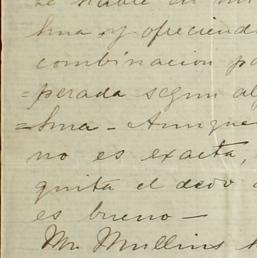 se hable de mi
hna y ofreciendo
combinacion pa
=perada segun al
=hna - Aunque
no es exacta,
quita el dedo d
es bueno —
Mr. Mullins h